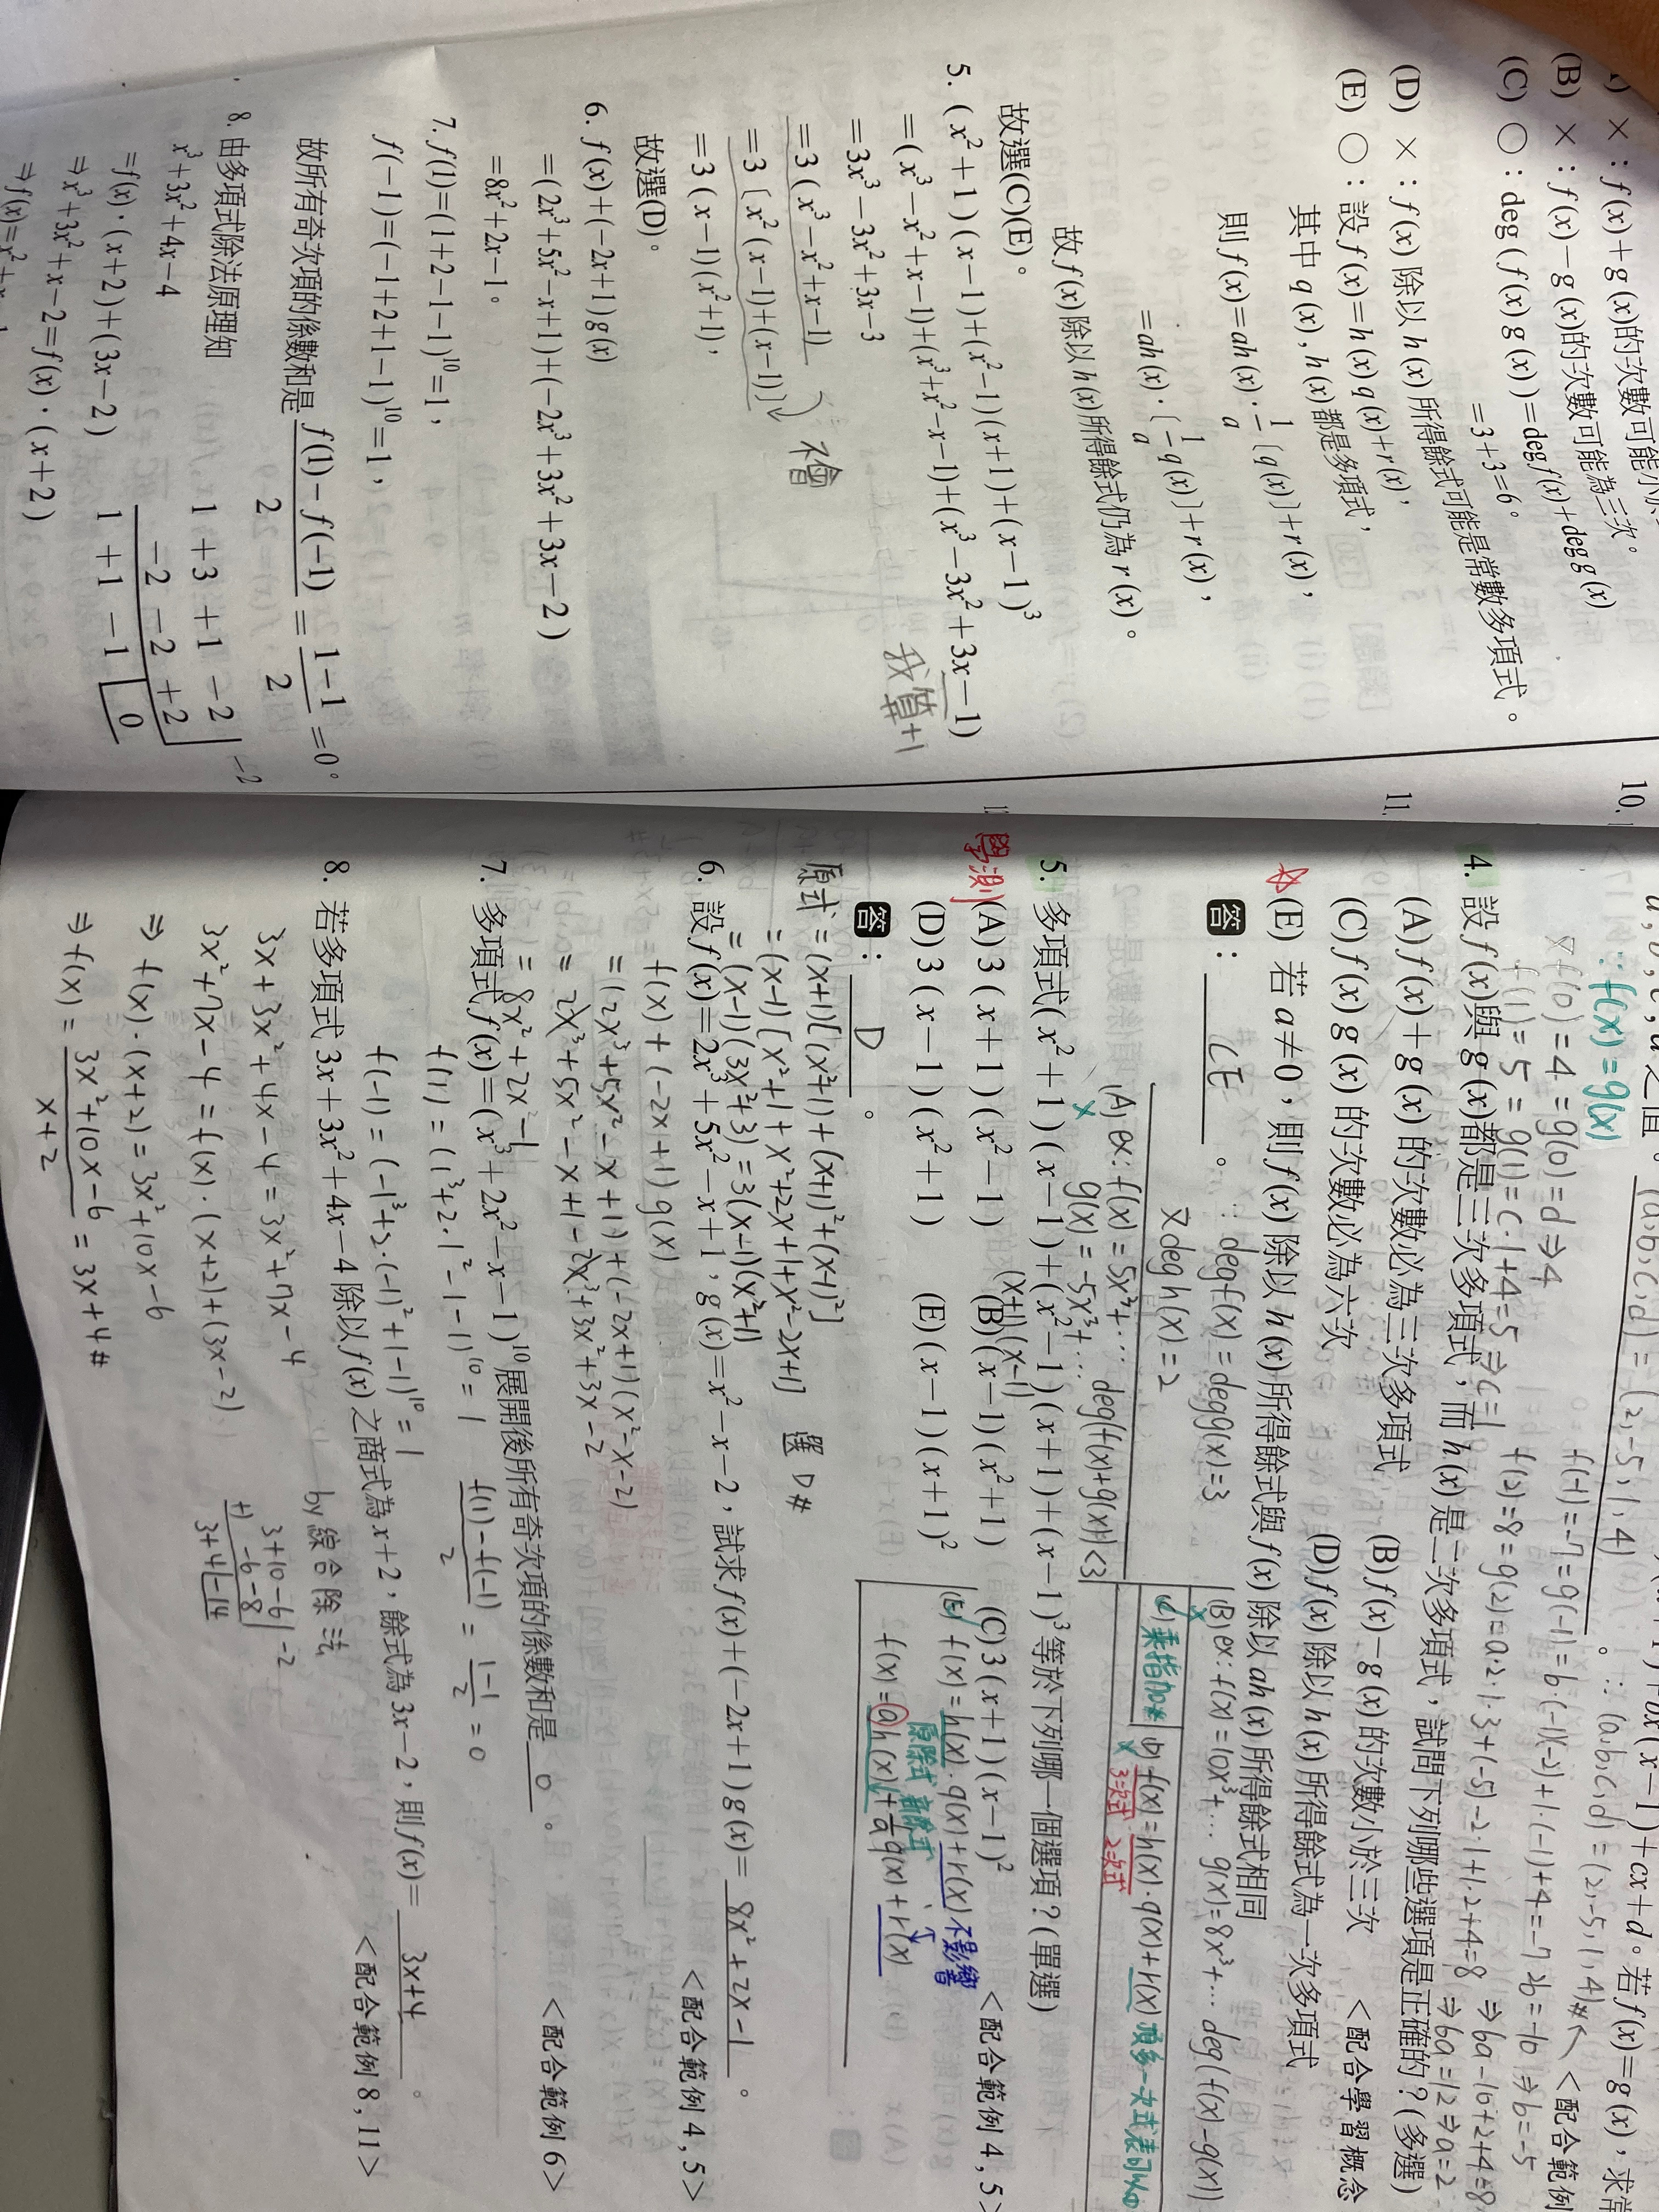 × : f(x)+g(x)的次數可能小於
(B) × : f(x)−g(x)的次數可能為三次。
(C) ○ : deg(f(x)g(x))=degf(x)+degg(x)
=3+3=6。
(D) × : f(x)除以h(x)所得餘式可能是常數多項式。
(E) ○ : 設f(x)=h(x)q(x)+r(x),
其中q(x),h(x)都是多項式,
則f(x)=ah(x)·1/a[q(x)]+r(x),
=ah(x)·[1/a q(x)]+r(x),
故f(x)除以h(x)所得餘式仍為r(x)。
故選(C)(E)。
5. (x²+1)(x−1)+(x²−1)(x+1)+(x−1)³
=(x³−x²+x−1)+(x³+x²−x−1)+(x³−3x²+3x−1)
我算+1
=3x³−3x²+3x−3
=3(x³−x²+x−1)
不會
=3[x²(x−1)+(x−1)]
=3(x−1)(x²+1),
故選(D)。
6. f(x)+(−2x+1)g(x)
=(2x³+5x²−x+1)+(−2x³+3x²+3x−2)
=8x²+2x−1。
7. f(1)=(1+2−1−1)¹⁰=1,
f(−1)=(−1+2+1−1)¹⁰=1,
故所有奇次項的係數和是 f(1)−f(−1)/2 = 1−1/2 =0。
8. 由多項式除法原理知
x³+3x²+4x−4
=f(x)·(x+2)+(3x−2)
⇒x³+3x²+x−2=f(x)·(x+2)
⇒f(x)=x²+x−1
1+3+1−2 | −2
−2−2+2
1+1−1 0
10.
11.
+bx(x−1)+cx+d。若f(x)=g(x),求常
a,b,c,d之值。 (a,b,c,d)=(2,−5,1,4)。
<配合範例
∵f(x)=g(x)
∴(a,b,c,d)=(2,−5,1,4)#
f(0)=4=g(0)=d⇒4
f(−1)=−7=g(−1)=b(−1)(−2)+1·(−1)+4=−7 2b=−10⇒b=−5
f(1)=5=g(1)=c·1+4=5⇒c=1
f(2)=8=g(2)=a·2·1·3+(−5)·2·1+1·2+4=8 ⇒6a−10+2+4=8
⇒6a=12⇒a=2
4. 設f(x)與g(x)都是三次多項式,而h(x)是二次多項式,試問下列哪些選項是正確的?(多選)
(A)f(x)+g(x)的次數必為三次多項式 (B)f(x)−g(x)的次數小於三次 <配合學習概念
(C)f(x)g(x)的次數必為六次 (D)f(x)除以h(x)所得餘式為一次多項式
(E) 若a≠0,則f(x)除以h(x)所得餘式與f(x)除以ah(x)所得餘式相同
答: CE 。
∵degf(x)=degg(x)=3
又degh(x)=2
(A) ex:f(x)=5x³+…
g(x)=−5x³+…
deg(f(x)+g(x))<3
(B) ex:f(x)=10x³+… g(x)=8x³+… deg(f(x)−g(x))
(C)乘指加#
(D) f(x)=h(x)·q(x)+r(x) 頂多一次式
3次式 2次式
(E) f(x)=h(x)·q(x)+r(x) 不影響
原除式
f(x)=ah(x)+1/a q(x)+r(x)
學測
5. 多項式(x²+1)(x−1)+(x²−1)(x+1)+(x−1)³等於下列哪一個選項?(單選)
(x+1)(x−1)
(A)3(x+1)(x²−1) (B)(x−1)(x²+1) (C)3(x+1)(x−1)² <配合範例4,5>
(D)3(x−1)(x²+1) (E)(x−1)(x+1)²
答: D 。
原式=(x+1)[(x²+1)+(x+1)²+(x+1)²]
=(x−1)[x²+1+x²+2x+1+x²−2x+1] 選D#
=(x−1)(3x²+3)=3(x−1)(x²+1)
6. 設f(x)=2x³+5x²−x+1,g(x)=x²−x−2,試求f(x)+(−2x+1)g(x)= 8x²+2x−1 。
<配合範例4,5>
f(x)+(−2x+1)g(x)
=(2x³+5x²−x+1)+(−2x+1)(x²−x−2)
=2x³+5x²−x+1−2x³+3x²+3x−2
=8x²+2x−1
7. 多項式f(x)=(x³+2x²−x−1)¹⁰展開後所有奇次項的係數和是 0 。
<配合範例6>
f(1)=(1³+2·1²−1−1)¹⁰=1
f(−1)=(−1³+2·(−1)²+1−1)¹⁰=1
f(1)−f(−1)/2 = 1−1/2 =0
8. 若多項式3x+3x²+4x−4除以f(x)之商式為x+2,餘式為3x−2,則f(x)= 3x+4 。
<配合範例8,11>
3x+3x²+4x−4=3x²+7x−4
3x²+7x−4=f(x)·(x+2)+(3x−2)
⇒f(x)·(x+2)=3x²+10x−6
⇒f(x)=3x²+10x−6/x+2=3x+4#
by綜合除法
3+10−6 | −2
+) −6−8
3+4 −14